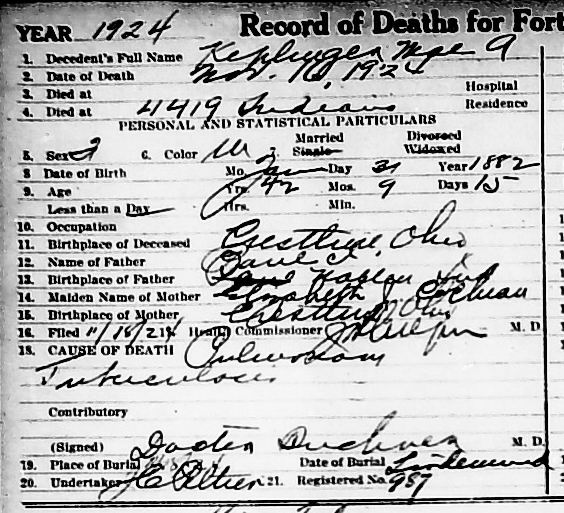 YEAR 1924 Record of Deaths for Fort
1. Decedent's Full Name Mae A
2. Date of Death Nov. 16, 1924
3. Died at Hospital
4. Died at 4419 Indiana Residence
PERSONAL AND STATISTICAL PARTICULARS
5. Sex 6. Color W 7. Married Single Divorced Widowed
8 Date of Birth Mo. Jan Day 31 Year 1882
9. Age Yrs. 42 Mos. 9 Days 15
Less than a Day Hrs. Min.
10. Occupation
11. Birthplace of Deceased Crestline, Ohio
12. Name of Father
13. Birthplace of Father
14. Maiden Name of Mother Elizabeth
15. Birthplace of Mother Crestline Ohio
16. Filed 11/18/24 Health Commissioner M. D.
18. CAUSE OF DEATH Pulmonary
Tuberculosis
Contributory
(Signed) Doctor M. D.
19. Place of Burial Date of Burial Lindenwood
20. Undertaker 21. Registered No. 987